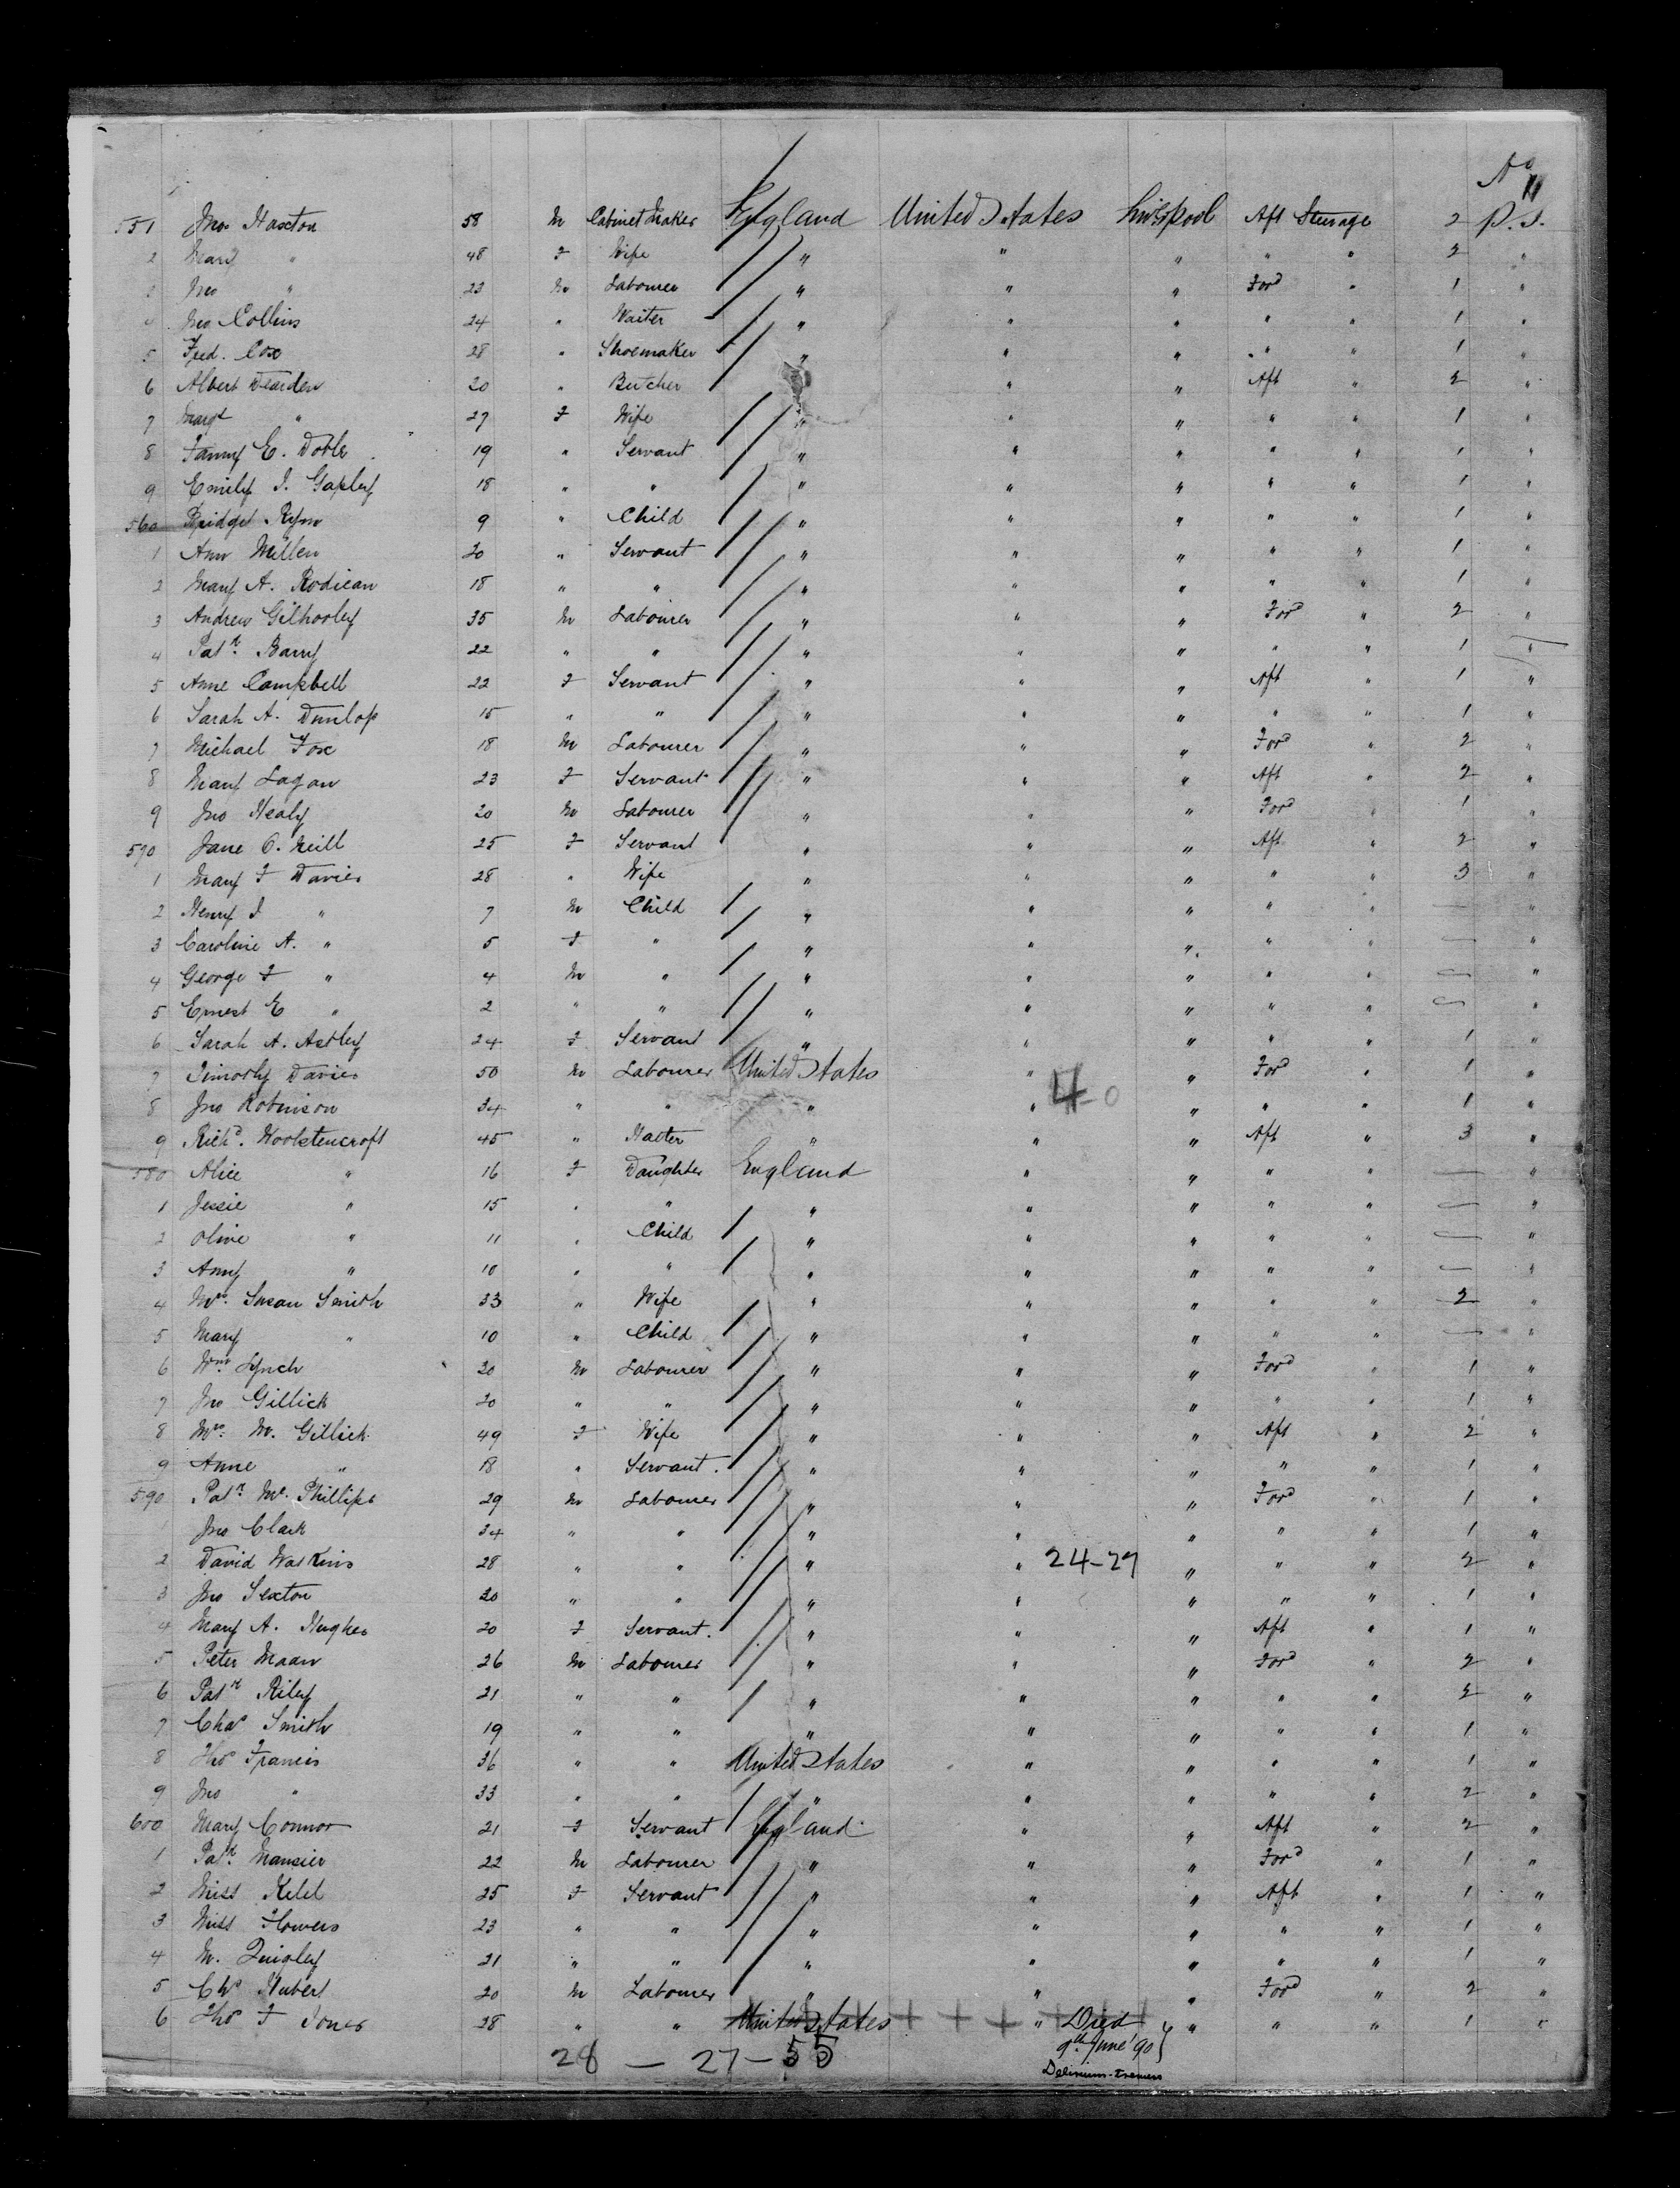 No 11
551 Jno. Haxton 58 M Cabinet Maker England United States Liverpool Aft Steerage 2 P.S.
2 Mary " 48 F Wife " " " " " 2 "
3 Jno " 23 M Labourer " " " Ford " 1 "
4 Jno Collins 24 " Waiter " " " " " 1 "
5 Fred. Cox 28 " Shoemaker " " " " " 1 "
6 Albert Dearden 20 " Butcher " " Aft " 2 "
7 Margt " 27 F Wife " " " " " 1 "
8 Fanny E. Doble 19 " Servant " " " " " 1 "
9 Emily J. Gapley 18 " " " " " " " 1 "
560 Bridget Ryan 9 " Child " " " " " 1 "
1 Ann Millen 20 " Servant " " " " " 1 "
2 Mary A. Rodican 18 " " " " " " " 1 "
3 Andrew Gilhooley 35 M Labourer " " " Ford " 2 "
4 Patk. Barry 22 " " " " " " " 1 "
5 Anne Campbell 22 F Servant " " " Aft " 1 "
6 Sarah A. Dunlop 15 " " " " " " " 1 "
7 Michael Fox 18 M Labourer " " " Ford " 2 "
8 Mary Logan 23 F Servant " " " Aft " 2 "
9 Jno Healy 20 M Labourer " " " Ford " 1 "
570 Jane O. Neill 25 F Servant " " " Aft " 2 "
1 Mary F Davies 28 " Wife " " " " " 3 "
2 Henry J " 7 M Child " " " " " — "
3 Caroline A. " 5 F " " " " " " — "
4 George F " 4 M " " " " " " — "
5 Ernest E " 2 " " " " " " " — "
6 Sarah A. Astley 24 F Servant " " " " " 1 "
7 Timothy Davies 50 M Labourer United States " " Ford " 1 "
8 Jno Robinson 34 " " " " 4-0 " " " 1 "
9 Richd. Woolstencroft 45 " Hatter " " " Aft " 3 "
580 Alice " 16 F Daughter England " " " " — "
1 Jessie " 15 " " " " " " " — "
2 Olive " 11 " Child " " " " " — "
3 Amy " 10 " " " " " " " — "
4 Mrs. Susan Smith 33 " Wife " " " " " 2 "
5 Mary " 10 " Child " " " " " — "
6 Wm Lynch 20 M Labourer " " " Ford " 1 "
7 Jno Gillick 20 " " " " " " " 1 "
8 Mrs. M. Gillick 49 F Wife " " " Aft " 2 "
9 Anne " 18 " Servant. " " " " " 1 "
590 Patk. Mc. Phillips 29 M Labourer " " " Ford " 1 "
1 Jno Clark 34 " " " " " " " 1 "
2 David Watkins 28 " " " " 24-27 " " " 2 "
3 Jno Sexton 20 " " " " " " " 1 "
4 Mary A. Hughes 20 F Servant. " " " Aft " 1 "
5 Peter Maan 26 M Labourer " " " Ford " 2 "
6 Patk Riley 21 " " " " " " " 2 "
7 Chas Smith 19 " " " " " " " 1 "
8 Thos Francis 36 " " United States " " " " 1 "
9 Jno " 33 " " " " " " " 2 "
600 Mary Connor 21 F Servant England " " Aft " 2 "
1 Patk. 22 M Labourer " " " Ford " 1 "
2 Miss 25 F Servant " " " Aft " 1 "
3 Miss Flowers 23 " " " " " " " 1 "
4 M. Quigley 21 " " " " " " " 1 "
5 Chs Hubert 20 M Labourer " " " Ford " 2 "
6 Thos F Jones 38 " " United States " Died " " " 1 "
9th June '90
28 — 27 — 55
Delirium-tremens